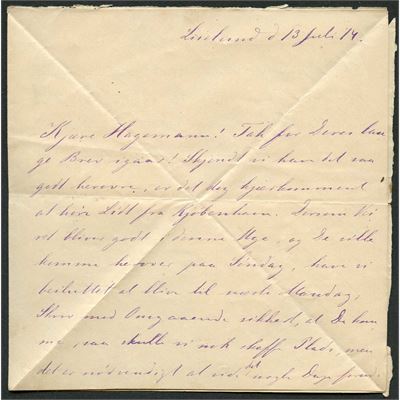 Liselund d 13 Juli 14.
Kjære Hagemann! Tak for Deres lan
ge Brev igaar! Skjøndt vi han det saa
godt herovre, er det dog kjærkomment
at høre Lidt fra Kjøbenhavn. Dersom Vei
ret bliver godt i denne Uge, og De vilde
komme herover paa Søndag, have vi
besluttet at blive til næste Mandag,
Skriv med Omgaaende sikkert, at De kom
me, saa skulle vi nok skaffe Plads, men
det er nødvendigt at vide det nogle Dage forud